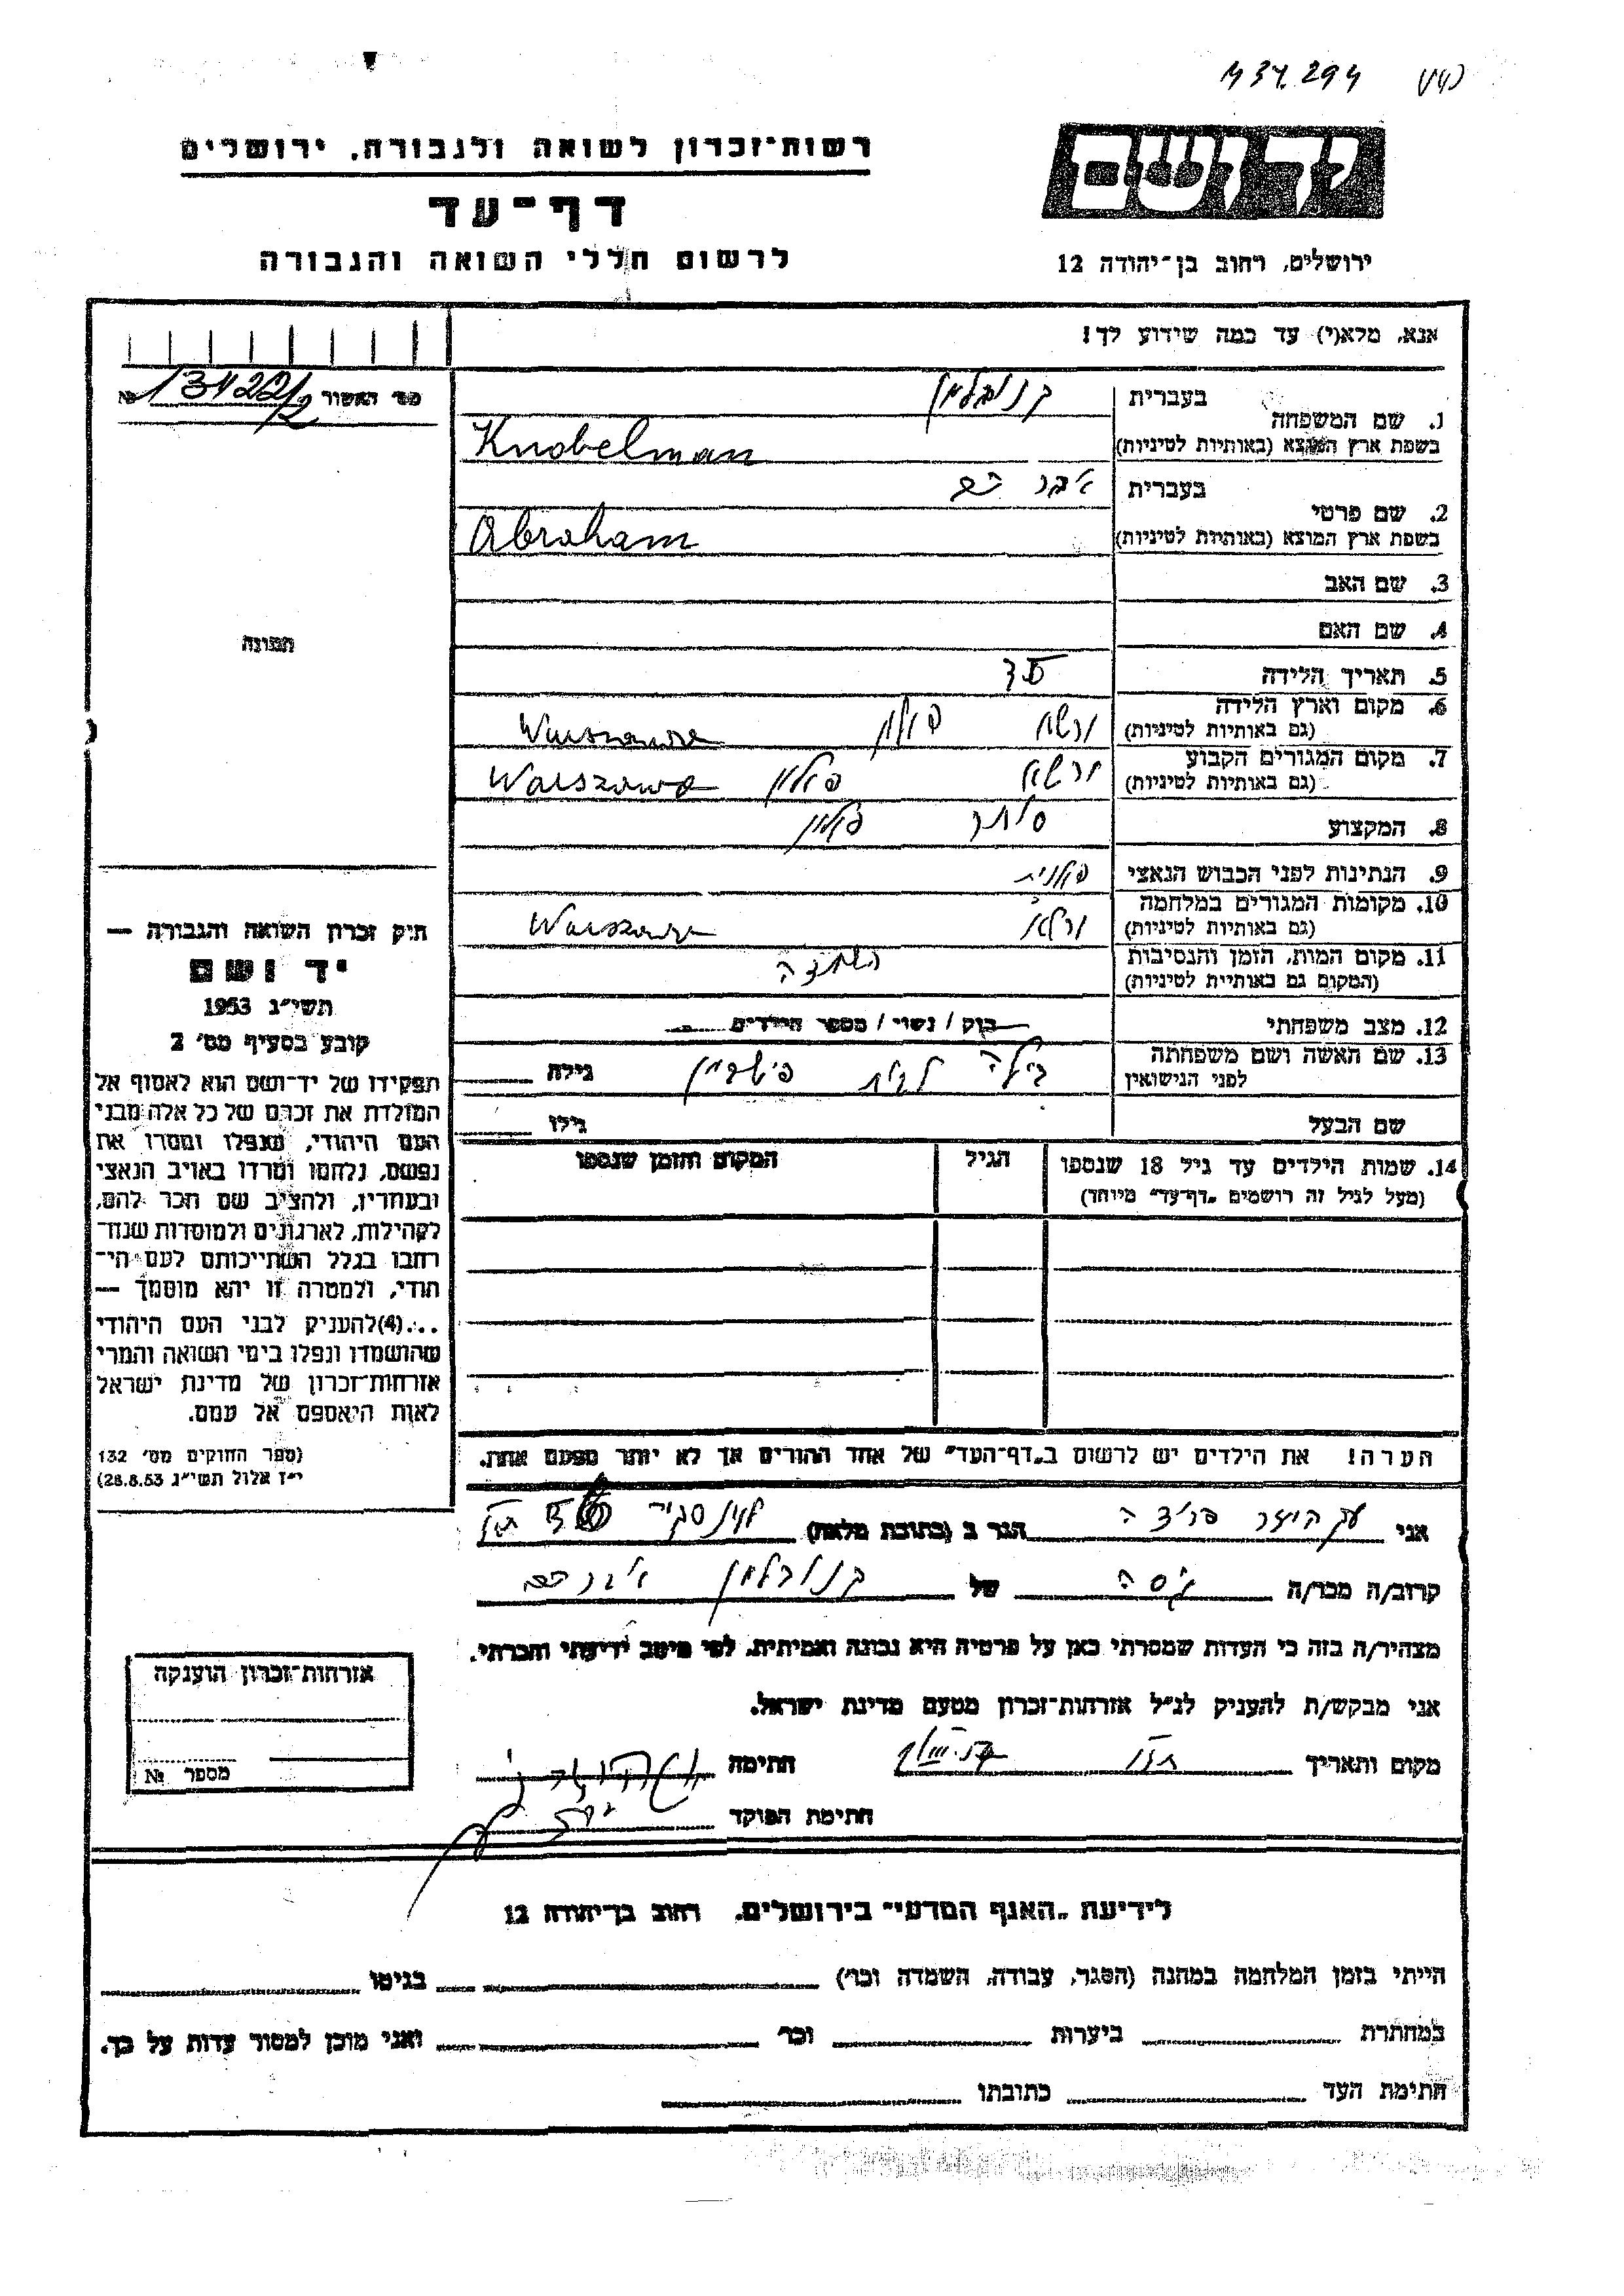 434.294
יד ושם
רשות-זכרון לשואה ולגבורה, ירושלים
דף-עד
לרשום חללי השואה והגבורה
ירושלים, רחוב בן-יהודה 12
אנא, מלא(י) עד כמה שידוע לך!
מס' האשור 134221/2 №
1. שם המשפחה בעברית קנובלמן
בשפת ארץ המוצא (באותיות לטיניות) Knobelman
2. שם פרטי בעברית אברהם
בשפת ארץ המוצא (באותיות לטיניות) Abraham
3. שם האב
4. שם האם
תמונה
5. תאריך הלידה
6. מקום וארץ הלידה ורשא פולין Warszawa
(גם באותיות לטיניות)
7. מקום המגורים הקבוע ורשא פולין Warszawa
(גם באותיות לטיניות)
8. המקצוע סוחר
9. הנתינות לפני הכבוש הנאצי פולנית
10. מקומות המגורים במלחמה ורשא Warszawa
(גם באותיות לטיניות)
11. מקום המות, הזמן והנסיבות
(המקום גם באותיות לטיניות)
12. מצב משפחתי רווק / נשוי / מספר הילדים
13. שם האשה ושם משפחתה לבית גילה
לפני הנישואין
שם הבעל גילו
14. שמות הילדים עד גיל 18 שנספו הגיל המקום והזמן שנספו
(מעל לגיל זה רושמים "דף-עד" מיוחד)
הערה! את הילדים יש לרשום ב"דף-העד" של אחד ההורים אך לא יותר מפעם אחת.
חוק זכרון השואה והגבורה —
יד ושם
תשי"ג 1953
קובע בסעיף מס' 2
תפקידו של יד-ושם הוא לאסוף אל
המולדת את זכרם של כל אלה מבני
העם היהודי, שנפלו ומסרו את
נפשם, נלחמו ומרדו באויב הנאצי
ובעוזריו, ולהציב שם וזכר להם,
לקהילות, לארגונים ולמוסדות שנח־
רבו בגלל השתייכותם לעם הי־
הודי, ולמטרה זו יהא מוסמך —
...(4)להעניק לבני העם היהודי
שהושמדו ונפלו בימי השואה והמרי
אזרחות-זכרון של מדינת ישראל
לאות היאספם אל עמם.
(ספר החוקים מס' 132
י"ז אלול תשי"ג 28.8.53)
אני הגר ב (כתובת מלאה)
קרוב/ה מכר/ה גיסה של קנובלמן אברהם
מצהיר/ה בזה כי העדות שמסרתי כאן על פרטיה היא נכונה ואמיתית, לפי מיטב ידיעתי והכרתי.
אני מבקש/ת להעניק לנ"ל אזרחות-זכרון מטעם מדינת ישראל.
מקום ותאריך חתימה
חתימת הפוקד
אזרחות-זכרון הוענקה
מספר №
לידיעת "האגף המדעי" בירושלים, רחוב בן-יהודה 12
הייתי בזמן המלחמה במחנה (הסגר, עבודה, השמדה וכו') בגיטו
במחתרת ביערות וכו' ואני מוכן למסור עדות על כך.
חתימת העד כתובתו